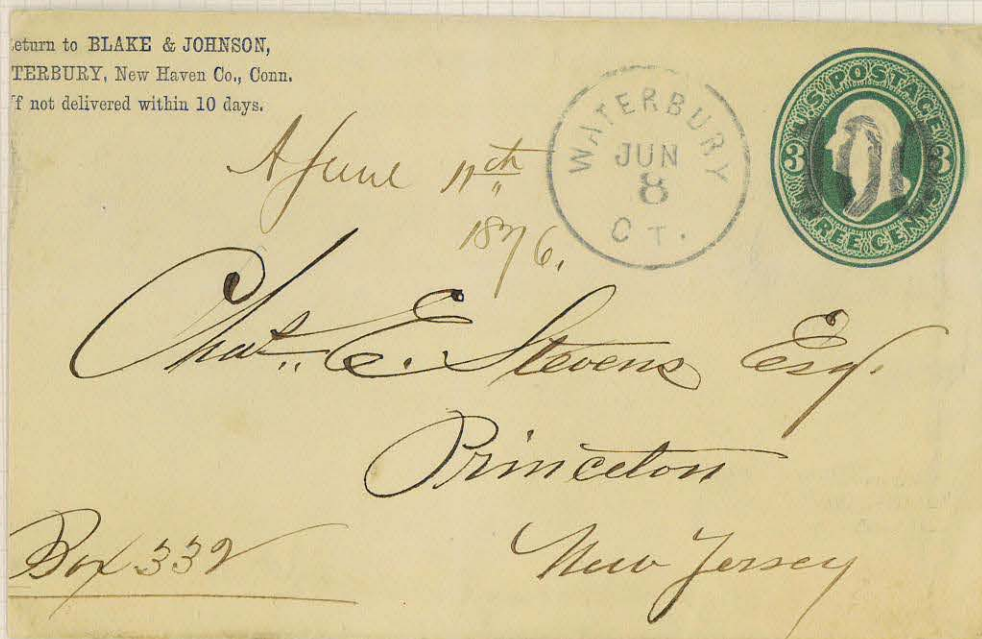 eturn to BLAKE & JOHNSON,
TERBURY, New Haven Co., Conn.
f not delivered within 10 days.
WATERBURY
JUN
8
CT.
U.S. POSTAGE
3 3
THREE CENTS
A June 11th
1876.
Chas. E. Stevens Esq.
Princeton
New Jersey
Box 332